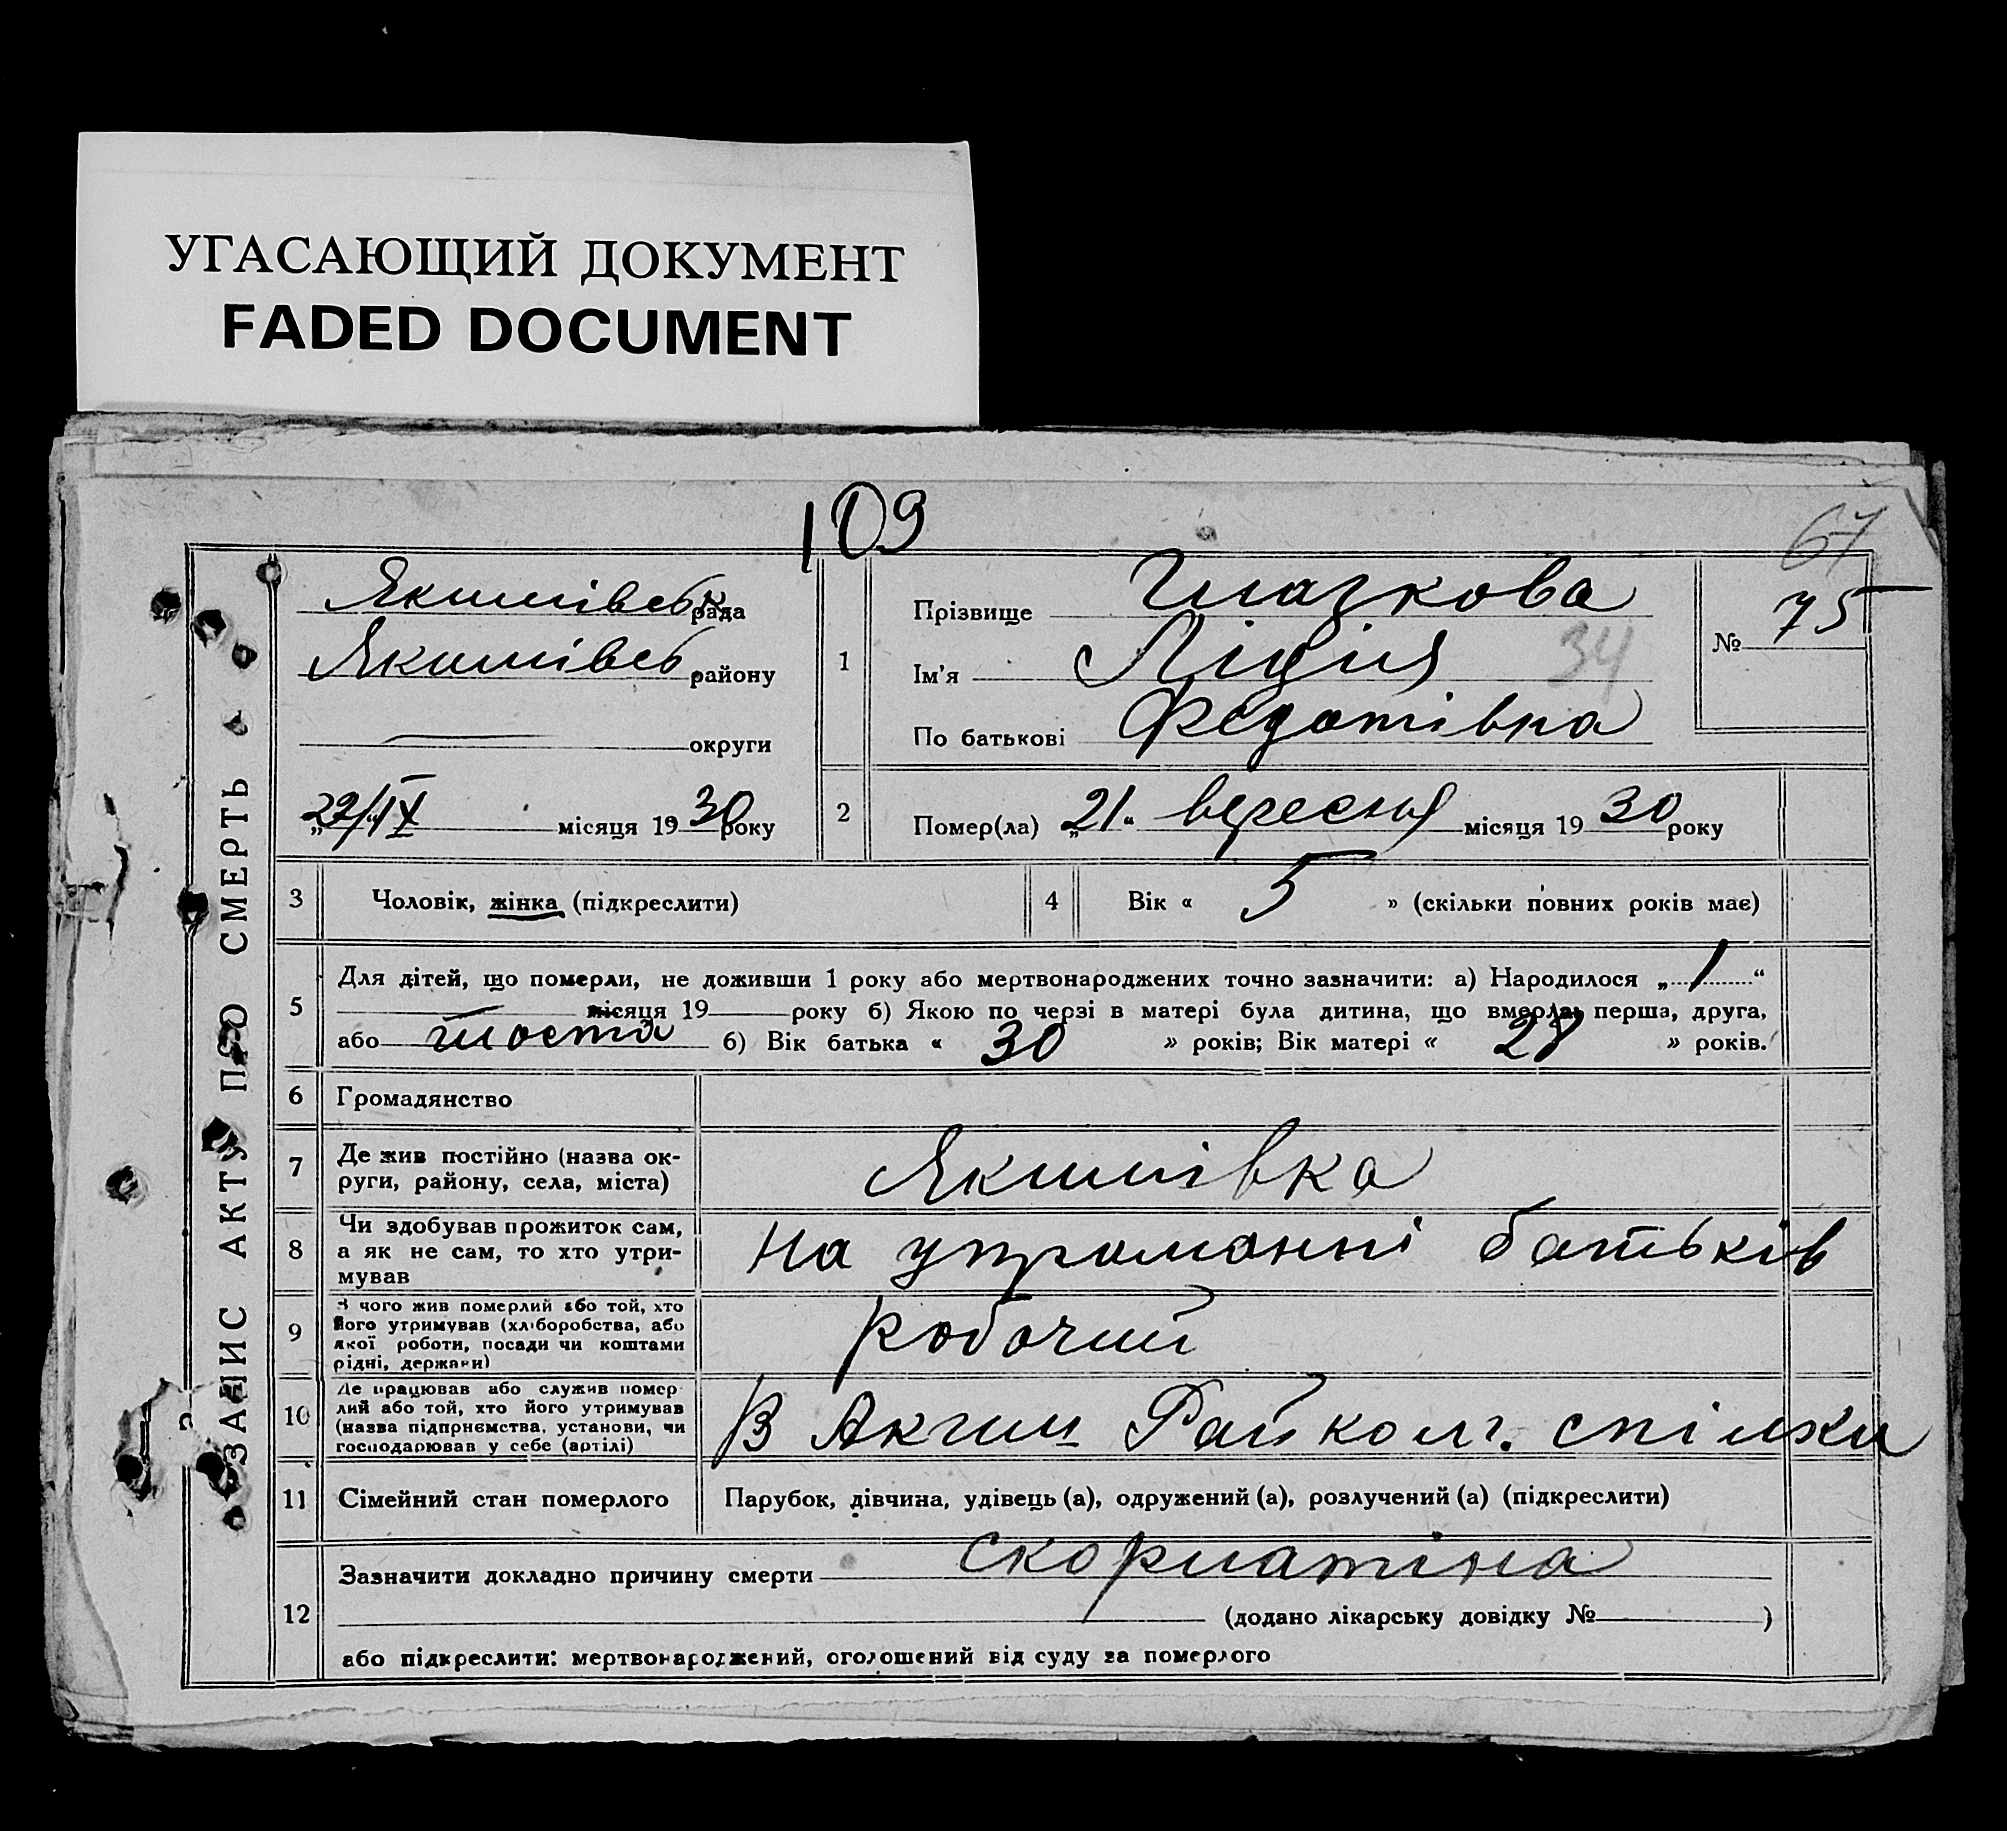 УГАСАЮЩИЙ ДОКУМЕНТ
FADED DOCUMENT
109
67
ЗАПИС АКТУ ПРО СМЕРТЬ
Якимівськ рада
Якимівсь району
округи
„22/IX місяця 1930 року
1
Прізвище Глазкова
Ім'я Лідія
34
По батькові Федотівна
№ 75
2
Помер(ла) „21“ вересня місяця 1930 року
3 Чоловік, жінка (підкреслити)
4 Вік « 5 » (скільки повних років має)
5 Для дітей, що померли, не доживши 1 року або мертвонароджених точно зазначити: а) Народилося „ 1 “
місяця 19 року б) Якою по черзі в матері була дитина, що вмерла: перша, друга,
або шоста б) Вік батька « 30 » років; Вік матері « 28 » років.
6 Громадянство
7 Де жив постійно (назва ок-
руги, району, села, міста)
Якимівка
8 Чи здобував прожиток сам,
а як не сам, то хто утри-
мував
на утриманні батьків
9 З чого жив померлий або той, хто
його утримував (хліборобства, або
якої роботи, посади чи коштами
рідні, держави)
робочий
10 Де працював або служив помер-
лий або той, хто його утримував
(назва підприємства, установи, чи
господарював у себе (артілі)
В Аким Райколг. спілки
11 Сімейний стан померлого
Парубок, дівчина, удівець (а), одружений (а), розлучений (а) (підкреслити)
12 Зазначити докладно причину смерти скорлатіна
(додано лікарську довідку № )
або підкреслити: мертвонароджений, оголошений від суду за померлого